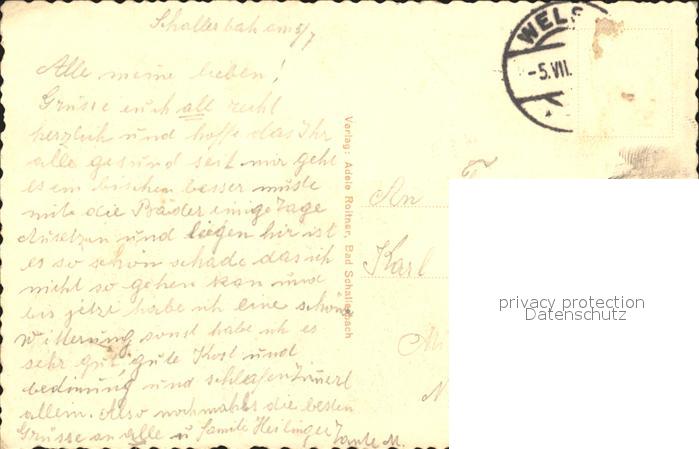 Schallerbach am 5/7
Alle meine lieben!
Grüsse euch all recht
herzlich und hoffe das Ihr
alle gesund seit mir geht
es ein bischen besser muste
mite die Bäder einige Tage
Ausetzen und liegen hir ist
es so schön schade das ich
nicht so gehen kan und
bis jetzt habe ich eine schöne
Witterung sonst habe ich es
sehr gut, gute Kost und
bedinung und schlafen
allein. Also nochmahls die besten
Grüsse an alle u Familie Heilinger Tante M.
Verlag: Adele Roitner, Bad Schallerbach
WELS
-5.VII.
An
Karl
privacy protection
Datenschutz